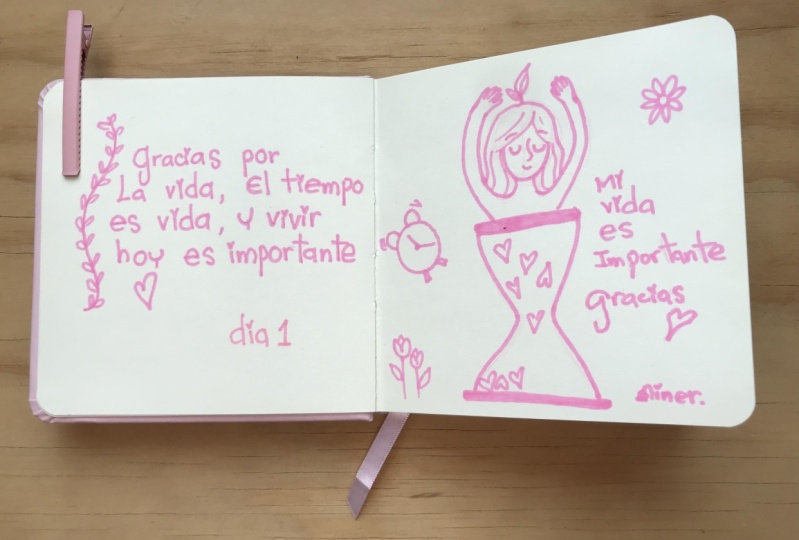 gracias por
La vida, El tiempo
es vida, y vivir
hoy es importante
dia 1
Mi
vida
es
Importante
gracias